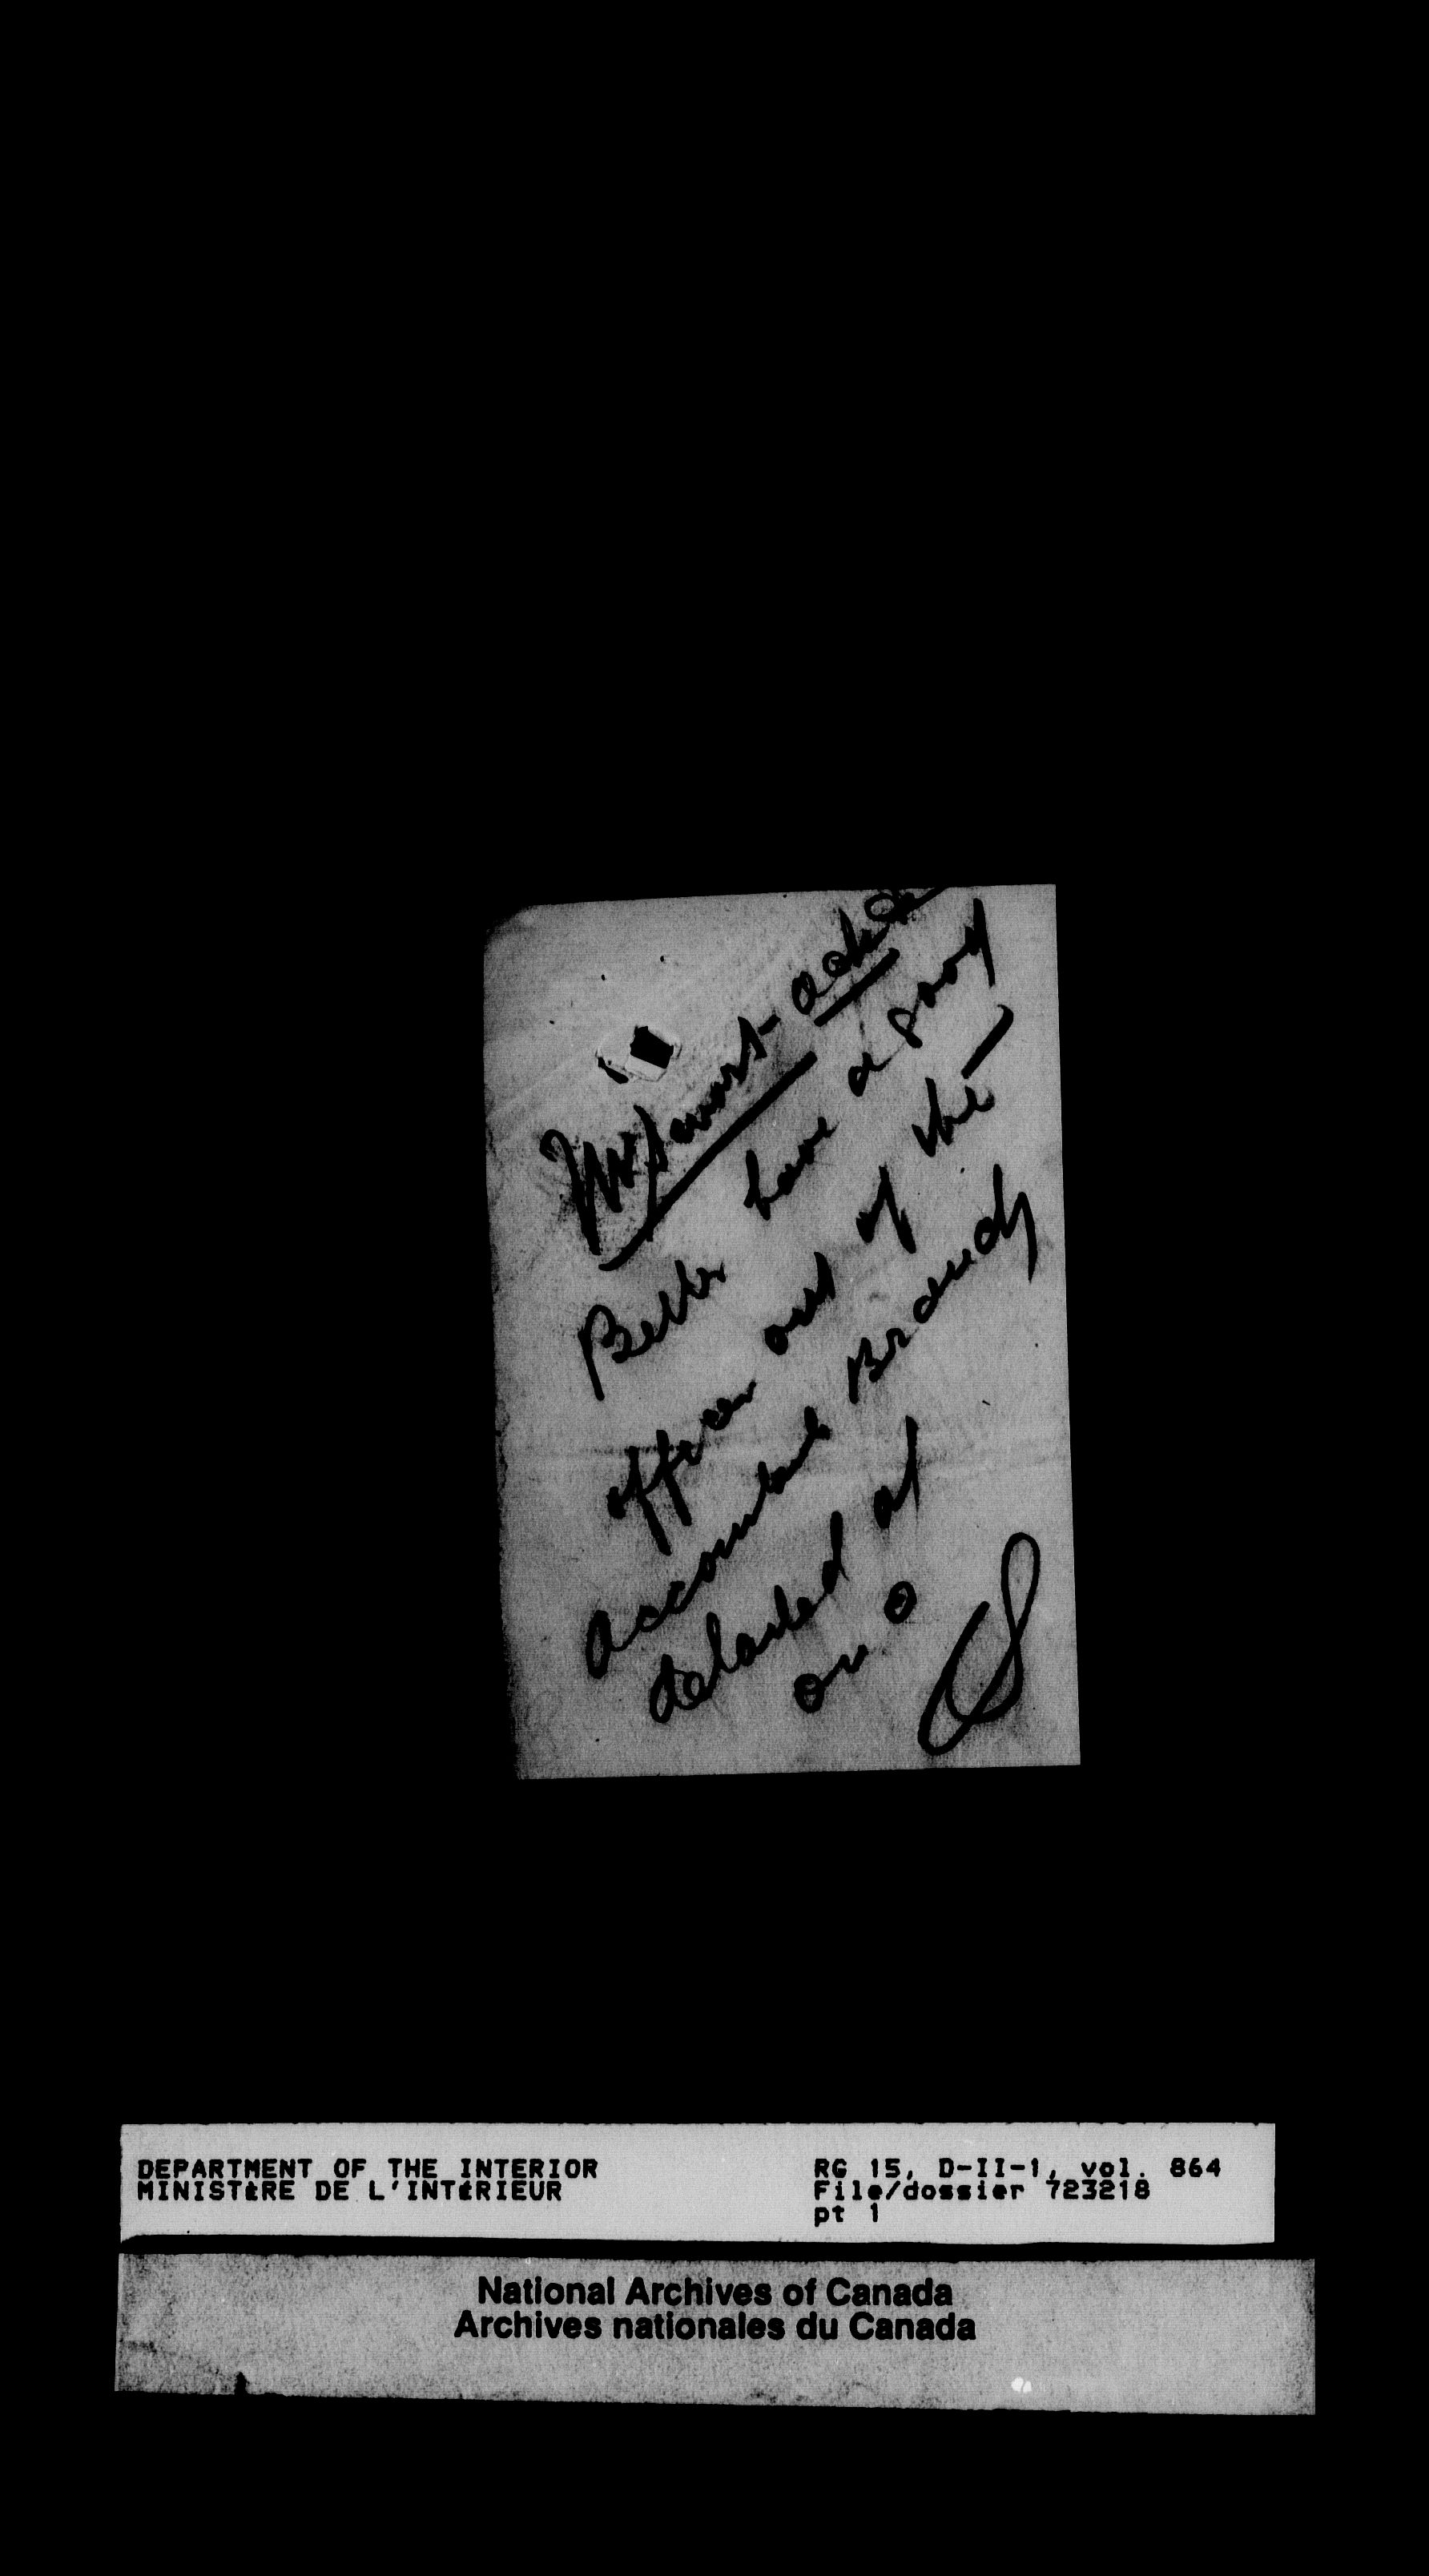 Better have a good
officer out of the
accountants Branch
detailed at
once
DEPARTMENT OF THE INTERIOR
MINISTÈRE DE L'INTÉRIEUR
RG 15, D-II-1, vol. 864
File/dossier 723218
pt 1
National Archives of Canada
Archives nationales du Canada